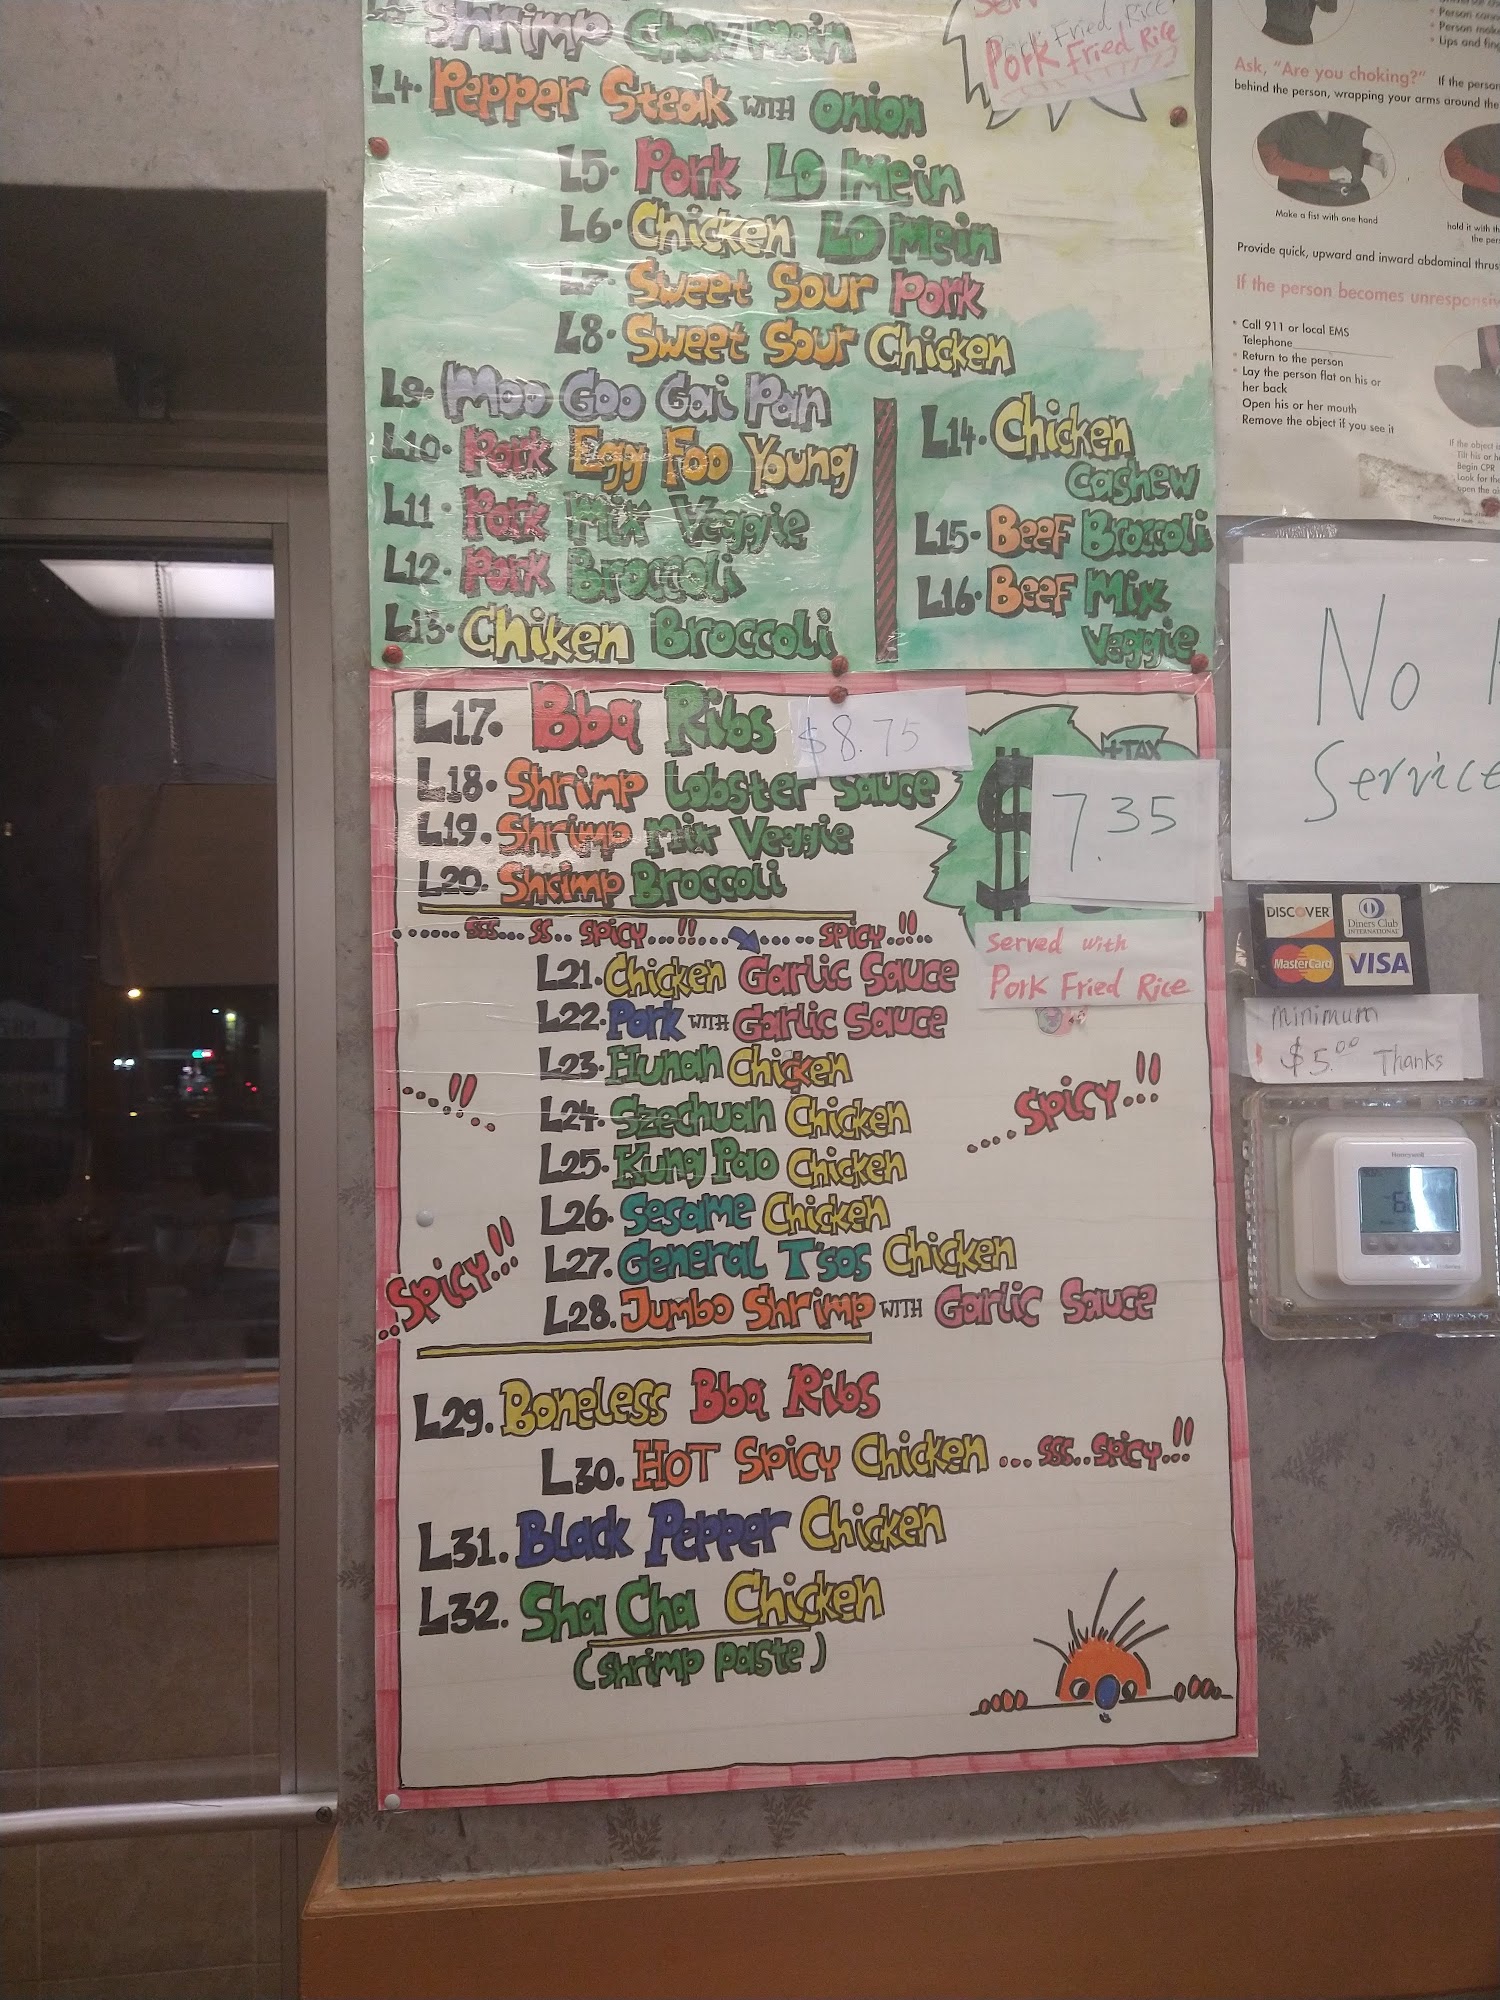 Shrimp Chow Mein
Pork Fried Rice
Pork Fried Rice
L4. Pepper Steak WITH Onion
L5. Pork Lo Mein
L6. Chicken Lo Mein
L7. Sweet Sour Pork
L8. Sweet Sour Chicken
L9. Moo Goo Gai Pan
L10. Pork Egg Foo Young
L11. Pork Mix Veggie
L12. Pork Broccoli
L13. Chiken Broccoli
L14. Chicken
Cashew
L15. Beef Broccoli
L16. Beef Mix
Veggie
L17. Bbq Ribs $8.75
+TAX
$ 7.35
L18. Shrimp Lobster Sauce
L19. Shrimp Mix Veggie
L20. Shrimp Broccoli
...... SSS... SS.. SPICY...!!.... .... SPICY..!!..
Served with
Pork Fried Rice
L21. Chicken Garlic Sauce
L22. Pork WITH Garlic Sauce
L23. Hunan Chicken
L24. Szechuan Chicken
L25. Kung Pao Chicken
L26. Sesame Chicken
L27. General T'sos Chicken
L28. Jumbo Shrimp WITH Garlic Sauce
....!!...
.... SPICY...!!
..SPICY...!!
L29. Boneless Bbq Ribs
L30. HOT SPICY Chicken ... SSS.. SPICY..!!
L31. Black Pepper Chicken
L32. Sha Cha Chicken
(shrimp paste)
• Lips and fing
Ask, "Are you choking?" If the person
behind the person, wrapping your arms around the
Make a fist with one hand
hold it with th
the per
Provide quick, upward and inward abdominal thrus
If the person becomes unresponsiv
• Call 911 or local EMS
Telephone
• Return to the person
• Lay the person flat on his or
her back
Open his or her mouth
Remove the object if you see it
If the object i
Tilt his or he
Begin CPR
Look for the
open the ai
No
Service
DISCOVER
Diners Club
INTERNATIONAL
MasterCard
VISA
minimum
$5.00 Thanks
Honeywell